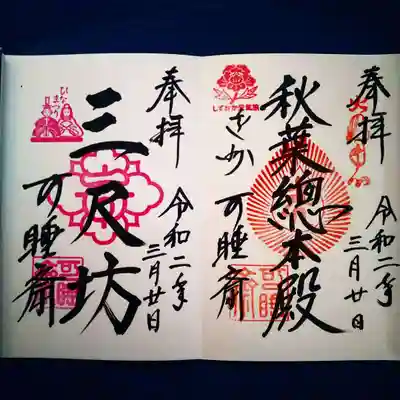 奉拝
令和二年
三月廿日
秋葉總本殿
しずおか
可睡斎
奉拝
令和二年
三月廿日
三尺坊
ひなまつり
可睡斎
可睡斎